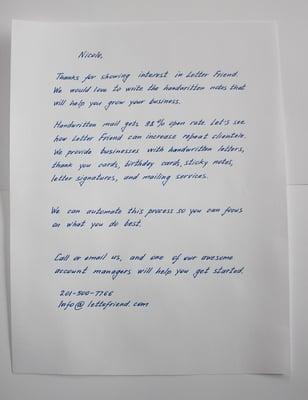 Nicole,
Thanks for showing interest in Letter Friend.
We would love to write the handwritten notes that
will help you grow your business.
Handwritten mail gets 98% open rate. Let's see
how Letter Friend can increase repeat clientele.
We provide businesses with handwritten letters,
thank you cards, birthday cards, sticky notes,
letter signatures, and mailing services.
We can automate this process so you can focus
on what you do best.
Call or email us, and one of our awesome
account managers will help you get started.
201-500-7760
Info@letterfriend.com